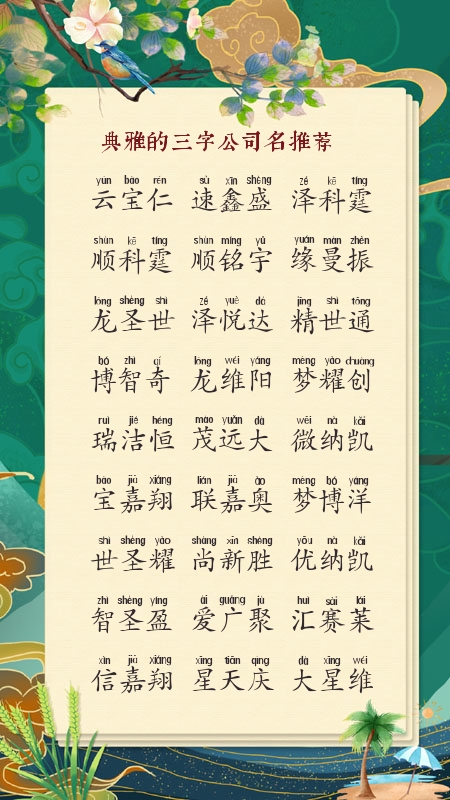 典雅的三字公司名推荐
yún bǎo rén sù xīn shèng zé kē tíng
云宝仁 速鑫盛 泽科霆
shùn kē tíng shùn míng yǔ yuán màn zhèn
顺科霆 顺铭宇 缘曼振
lóng shèng shì zé yuè dá jīng shì tōng
龙圣世 泽悦达 精世通
bó zhì qí lóng wéi yáng mèng yào chuàng
博智奇 龙维阳 梦耀创
ruì jié héng mào yuǎn dà wēi nà kǎi
瑞洁恒 茂远大 微纳凯
bǎo jiā xiáng lián jiā ào mèng bó yáng
宝嘉翔 联嘉奥 梦博洋
shì shèng yào shàng xīn shèng yōu nà kǎi
世圣耀 尚新胜 优纳凯
zhì shèng yíng ài guǎng jù huì sài lái
智圣盈 爱广聚 汇赛莱
xìn jiā xiáng xīng tiān qìng dà xīng wéi
信嘉翔 星天庆 大星维